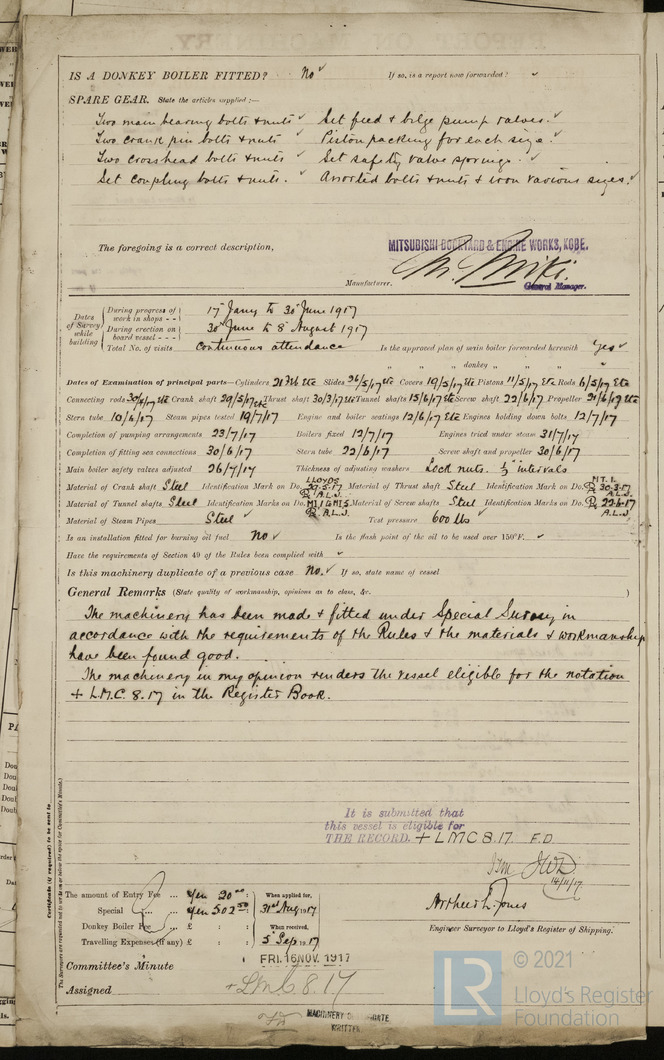 IS A DONKEY BOILER FITTED? No ✓ If so, is a report now forwarded? ✓
SPARE GEAR. State the articles supplied:—
Two main bearing bolts & nuts ✓ Set feed & bilge pump valves. ✓
Two crank pin bolts & nuts ✓ Piston packing for each size. ✓
Two crosshead bolts & nuts ✓ Set safety valve springs. ✓
Set coupling bolts & nuts. ✓ Assorted bolts & nuts & iron various sizes. ✓
The foregoing is a correct description,
MITSUBISHI DOCKYARD & ENGINE WORKS, KOBE.
Manufacturer. General Manager.
Dates of Survey while building
During progress of work in shops - - 17th Jany to 30th June 1917
During erection on board vessel - - - 30th June to 8th August 1917
Total No. of visits Continuous attendance Is the approved plan of main boiler forwarded herewith Yes ✓
" " " donkey " " "
Dates of Examination of principal parts—Cylinders 21 Feb etc Slides 26/5/17 etc Covers 19/5/17 etc Pistons 11/5/17 etc Rods 6/5/17 etc
Connecting rods 30/4/17 etc Crank shaft 29/5/17 etc Thrust shaft 30/3/17 etc Tunnel shafts 15/6/17 etc Screw shaft 22/6/17 Propeller 21/6/17 etc
Stern tube 10/6/17 Steam pipes tested 19/7/17 Engine and boiler seatings 12/6/17 etc Engines holding down bolts 12/7/17
Completion of pumping arrangements 23/7/17 Boilers fixed 12/7/17 Engines tried under steam 31/7/17
Completion of fitting sea connections 30/6/17 Stern tube 22/6/17 Screw shaft and propeller 30/6/17
Main boiler safety valves adjusted 26/7/17 Thickness of adjusting washers Lock nuts. intervals
Material of Crank shaft Steel Identification Mark on Do. LLOYDS 29-5-17 A.L.J. Material of Thrust shaft Steel Identification Mark on Do. 30-3-17 A.L.J.
Material of Tunnel shafts Steel Identification Marks on Do. A.L.J. Material of Screw shafts Steel Identification Marks on Do. 22-6-17 A.L.J.
Material of Steam Pipes Steel ✓ Test pressure 600 lbs ✓
Is an installation fitted for burning oil fuel No ✓ Is the flash point of the oil to be used over 150°F. ✓
Have the requirements of Section 49 of the Rules been complied with ✓
Is this machinery duplicate of a previous case No. ✓ If so, state name of vessel
General Remarks (State quality of workmanship, opinions as to class, &c. )
The machinery has been made & fitted under Special Survey in
accordance with the requirements of the Rules & the materials & workmanship
have been found good.
The machinery in my opinion renders the vessel eligible for the notation
+ L.M.C. 8.17 in the Register Book.
Certificate (if required) to be sent to
The Surveyors are requested not to write on or below the space for Committee's Minute.
It is submitted that
this vessel is eligible for
THE RECORD. + LMC 8.17. F.D
JWD
14/11/17
The amount of Entry Fee ... Yen 20.00 : When applied for,
Special ... Yen 502.50 : 31st Aug 1917
Donkey Boiler Fee ... £ : : When received,
Travelling Expenses (if any) £ : : 5th Sep. 1917
Arthur L. Jones
Engineer Surveyor to Lloyd's Register of Shipping.
Committee's Minute FRI. 16 NOV. 1917
Assigned + LMC 8.17
MACHINERY CERTIFICATE
WRITTEN
LR © 2021
Lloyd's Register
Foundation